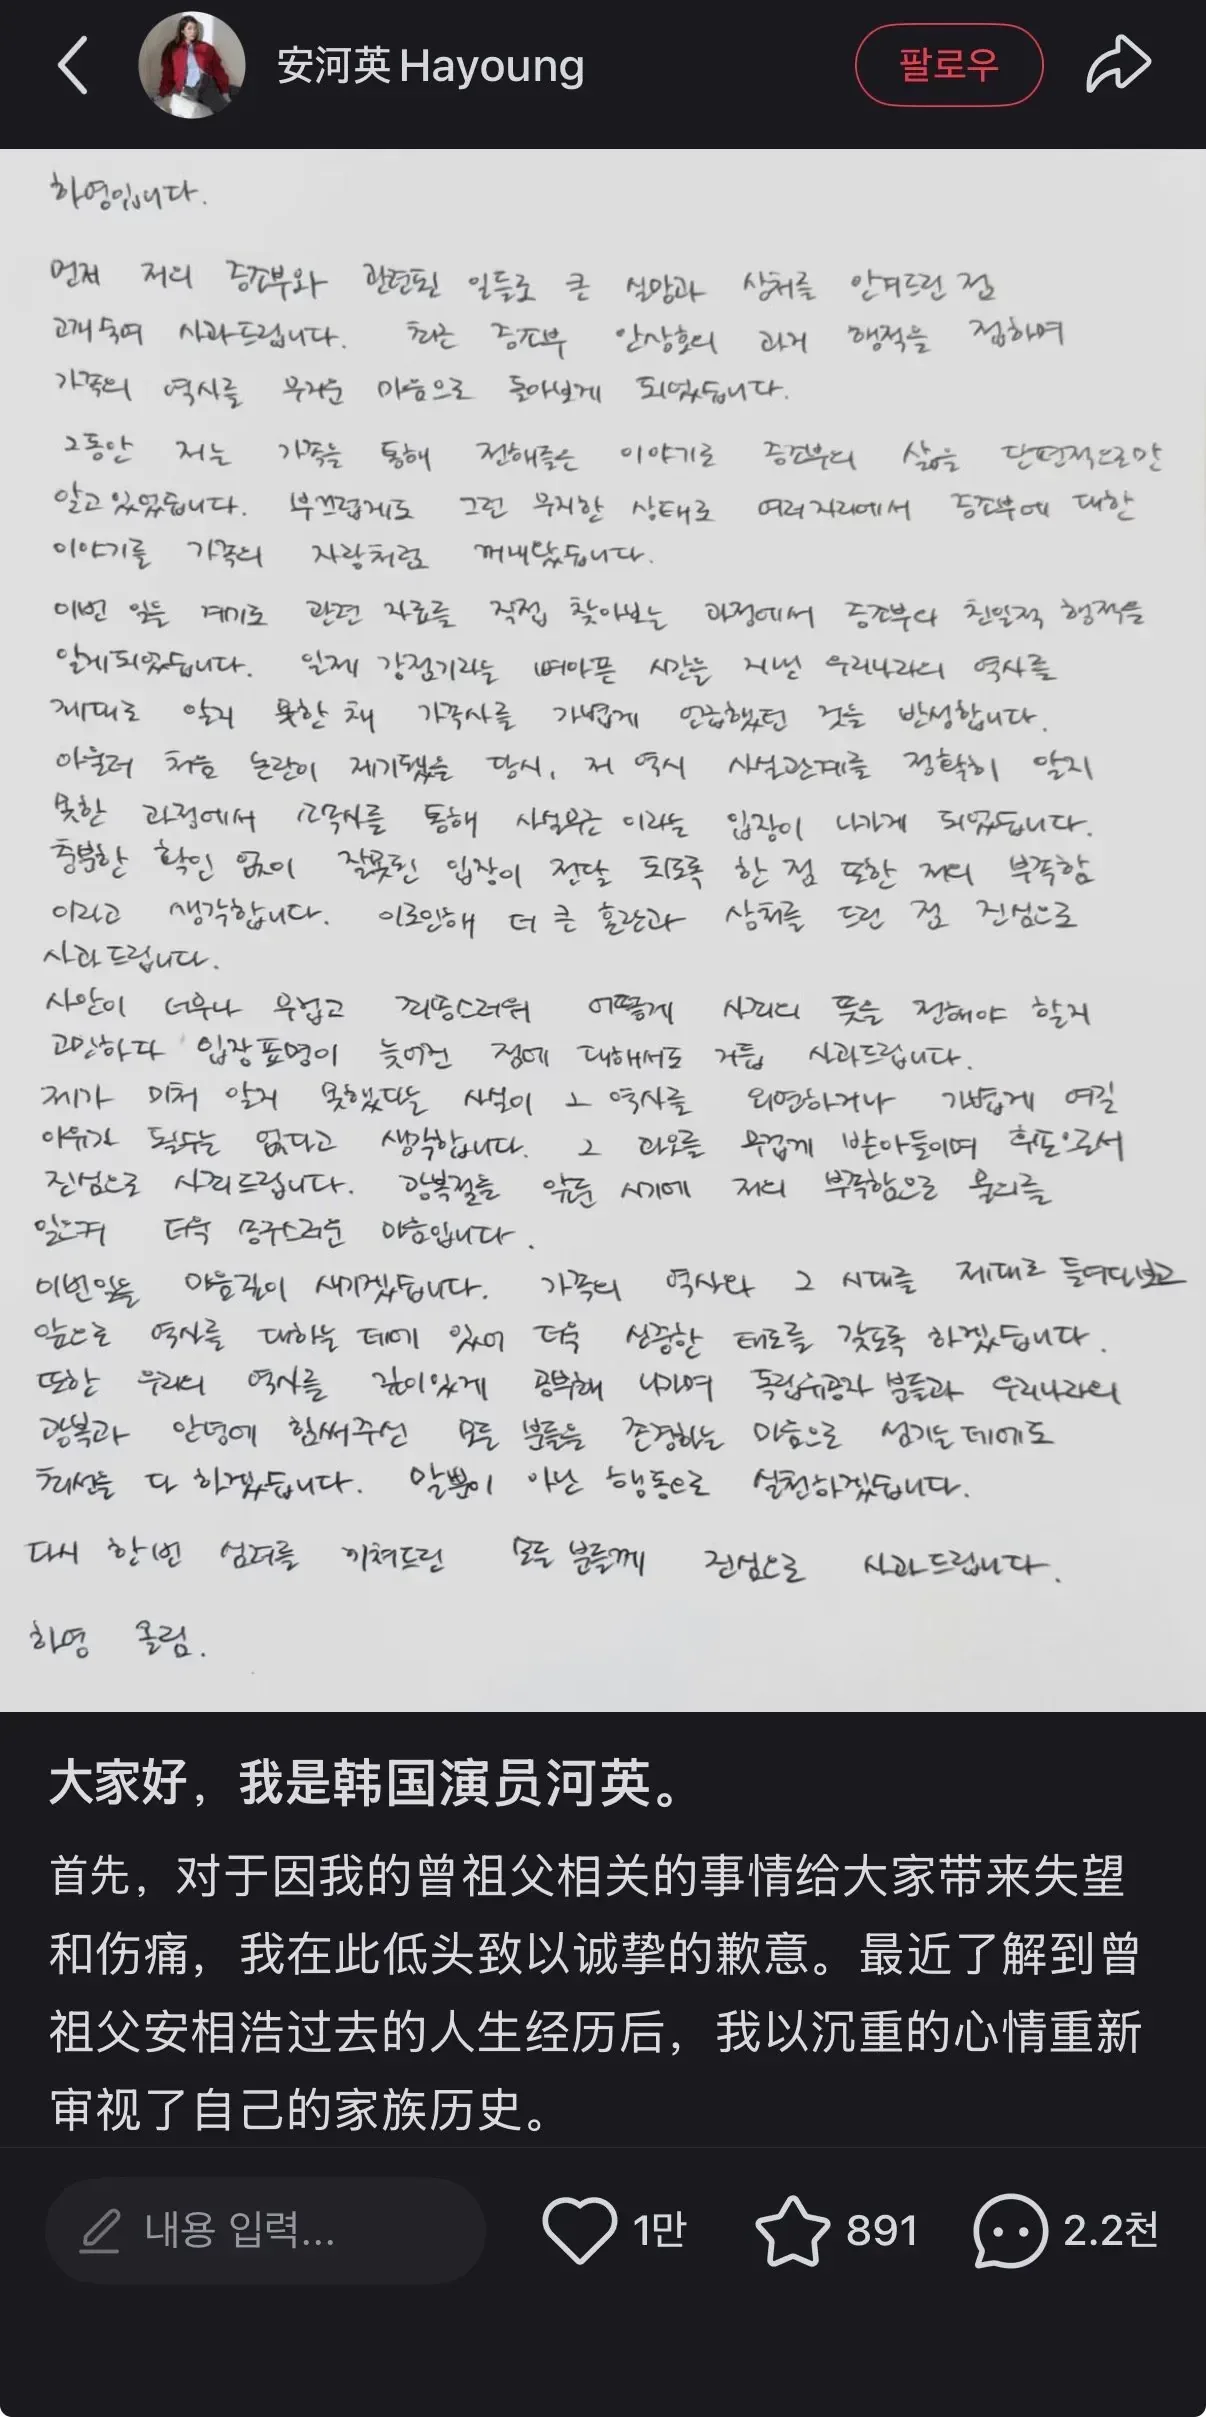 安河英Hayoung
팔로우
하영입니다.
먼저 저의 증조부와 관련된 일들로 큰 실망과 상처를 안겨드린 점
고개숙여 사과드립니다. 최근 증조부 안상호의 과거 행적을 접하며
가족의 역사를 무거운 마음으로 돌아보게 되었습니다.
그동안 저는 가족을 통해 전해들은 이야기로 증조부의 삶을 단편적으로만
알고있었습니다. 부끄럽게도 그런 무지한 상태로 여러자리에서 증조부에 대한
이야기를 가족의 자랑처럼 꺼내놨습니다.
이번 일을 계기로 관련 자료를 직접 찾아보는 과정에서 증조부의 친일적 행적을
알게되었습니다. 일제 강점기라는 뼈아픈 시간을 지낸 우리나라의 역사를
제대로 알지 못한 채 가족사를 가볍게 언급했던 것을 반성합니다.
아울러 처음 논란이 제기됐을 당시, 저 역시 사실관계를 정확히 알지
못한 과정에서 소속사를 통해 사실무근 이라는 입장이 나가게 되었습니다.
충분한 확인 없이 잘못된 입장이 전달 되도록 한 점 또한 저의 부족함
이라고 생각합니다. 이로인해 더 큰 혼란과 상처를 드린 점 진심으로
사과드립니다.
사안이 너무나 무겁고 죄송스러워 어떻게 사죄의 뜻을 전해야 할지
고민하다 입장표명이 늦어진 점에 대해서도 거듭 사과드립니다.
제가 미처 알지 못했다는 사실이 그 역사를 외면하거나 가볍게 여길
이유가 될수는 없다고 생각합니다. 그 과오를 무겁게 받아들이며 후손으로서
진심으로 사죄드립니다. 광복절을 앞둔 시기에 저의 부족함으로 물의를
일으켜 더욱 송구스러운 마음입니다.
이번일을 마음깊이 새기겠습니다. 가족의 역사와 그 시대를 제대로 들여다보고
앞으로 역사를 대하는 데에 있어 더욱 신중한 태도를 갖도록 하겠습니다.
또한 우리의 역사를 깊이있게 공부해 나가며 독립유공자 분들과 우리나라의
광복과 안녕에 힘써주신 모든 분들을 존경하는 마음으로 섬기는데에도
최선을 다 하겠습니다. 말뿐이 아닌 행동으로 실천하겠습니다.
다시 한번 심려를 끼쳐드린 모든 분들께 진심으로 사과드립니다.
하영 올림.
大家好，我是韩国演员河英。
首先，对于因我的曾祖父相关的事情给大家带来失望
和伤痛，我在此低头致以诚挚的歉意。最近了解到曾
祖父安相浩过去的人生经历后，我以沉重的心情重新
审视了自己的家族历史。
내용 입력...
1만
891
2.2천